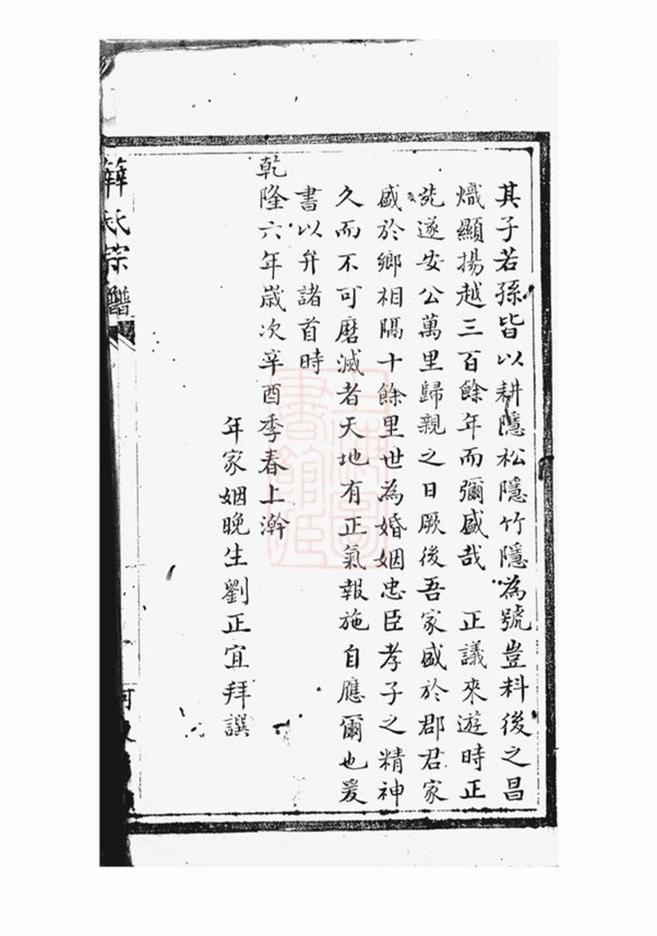 其子若孫皆以耕隱松隱竹隱為號豈料後之昌
熾顯揚越三百餘年而彌盛哉 正議來遊時正
苑遂安公萬里歸親之日厥後吾家盛於郡君家
盛於鄉相隔十餘里世為婚姻忠臣孝子之精神
久而不可磨滅者天地有正氣報施自應爾也爰
書以弁諸首時
乾隆六年歲次辛酉季春上澣
年家姻晚生劉正宜拜譔
薛氏宗譜
河東